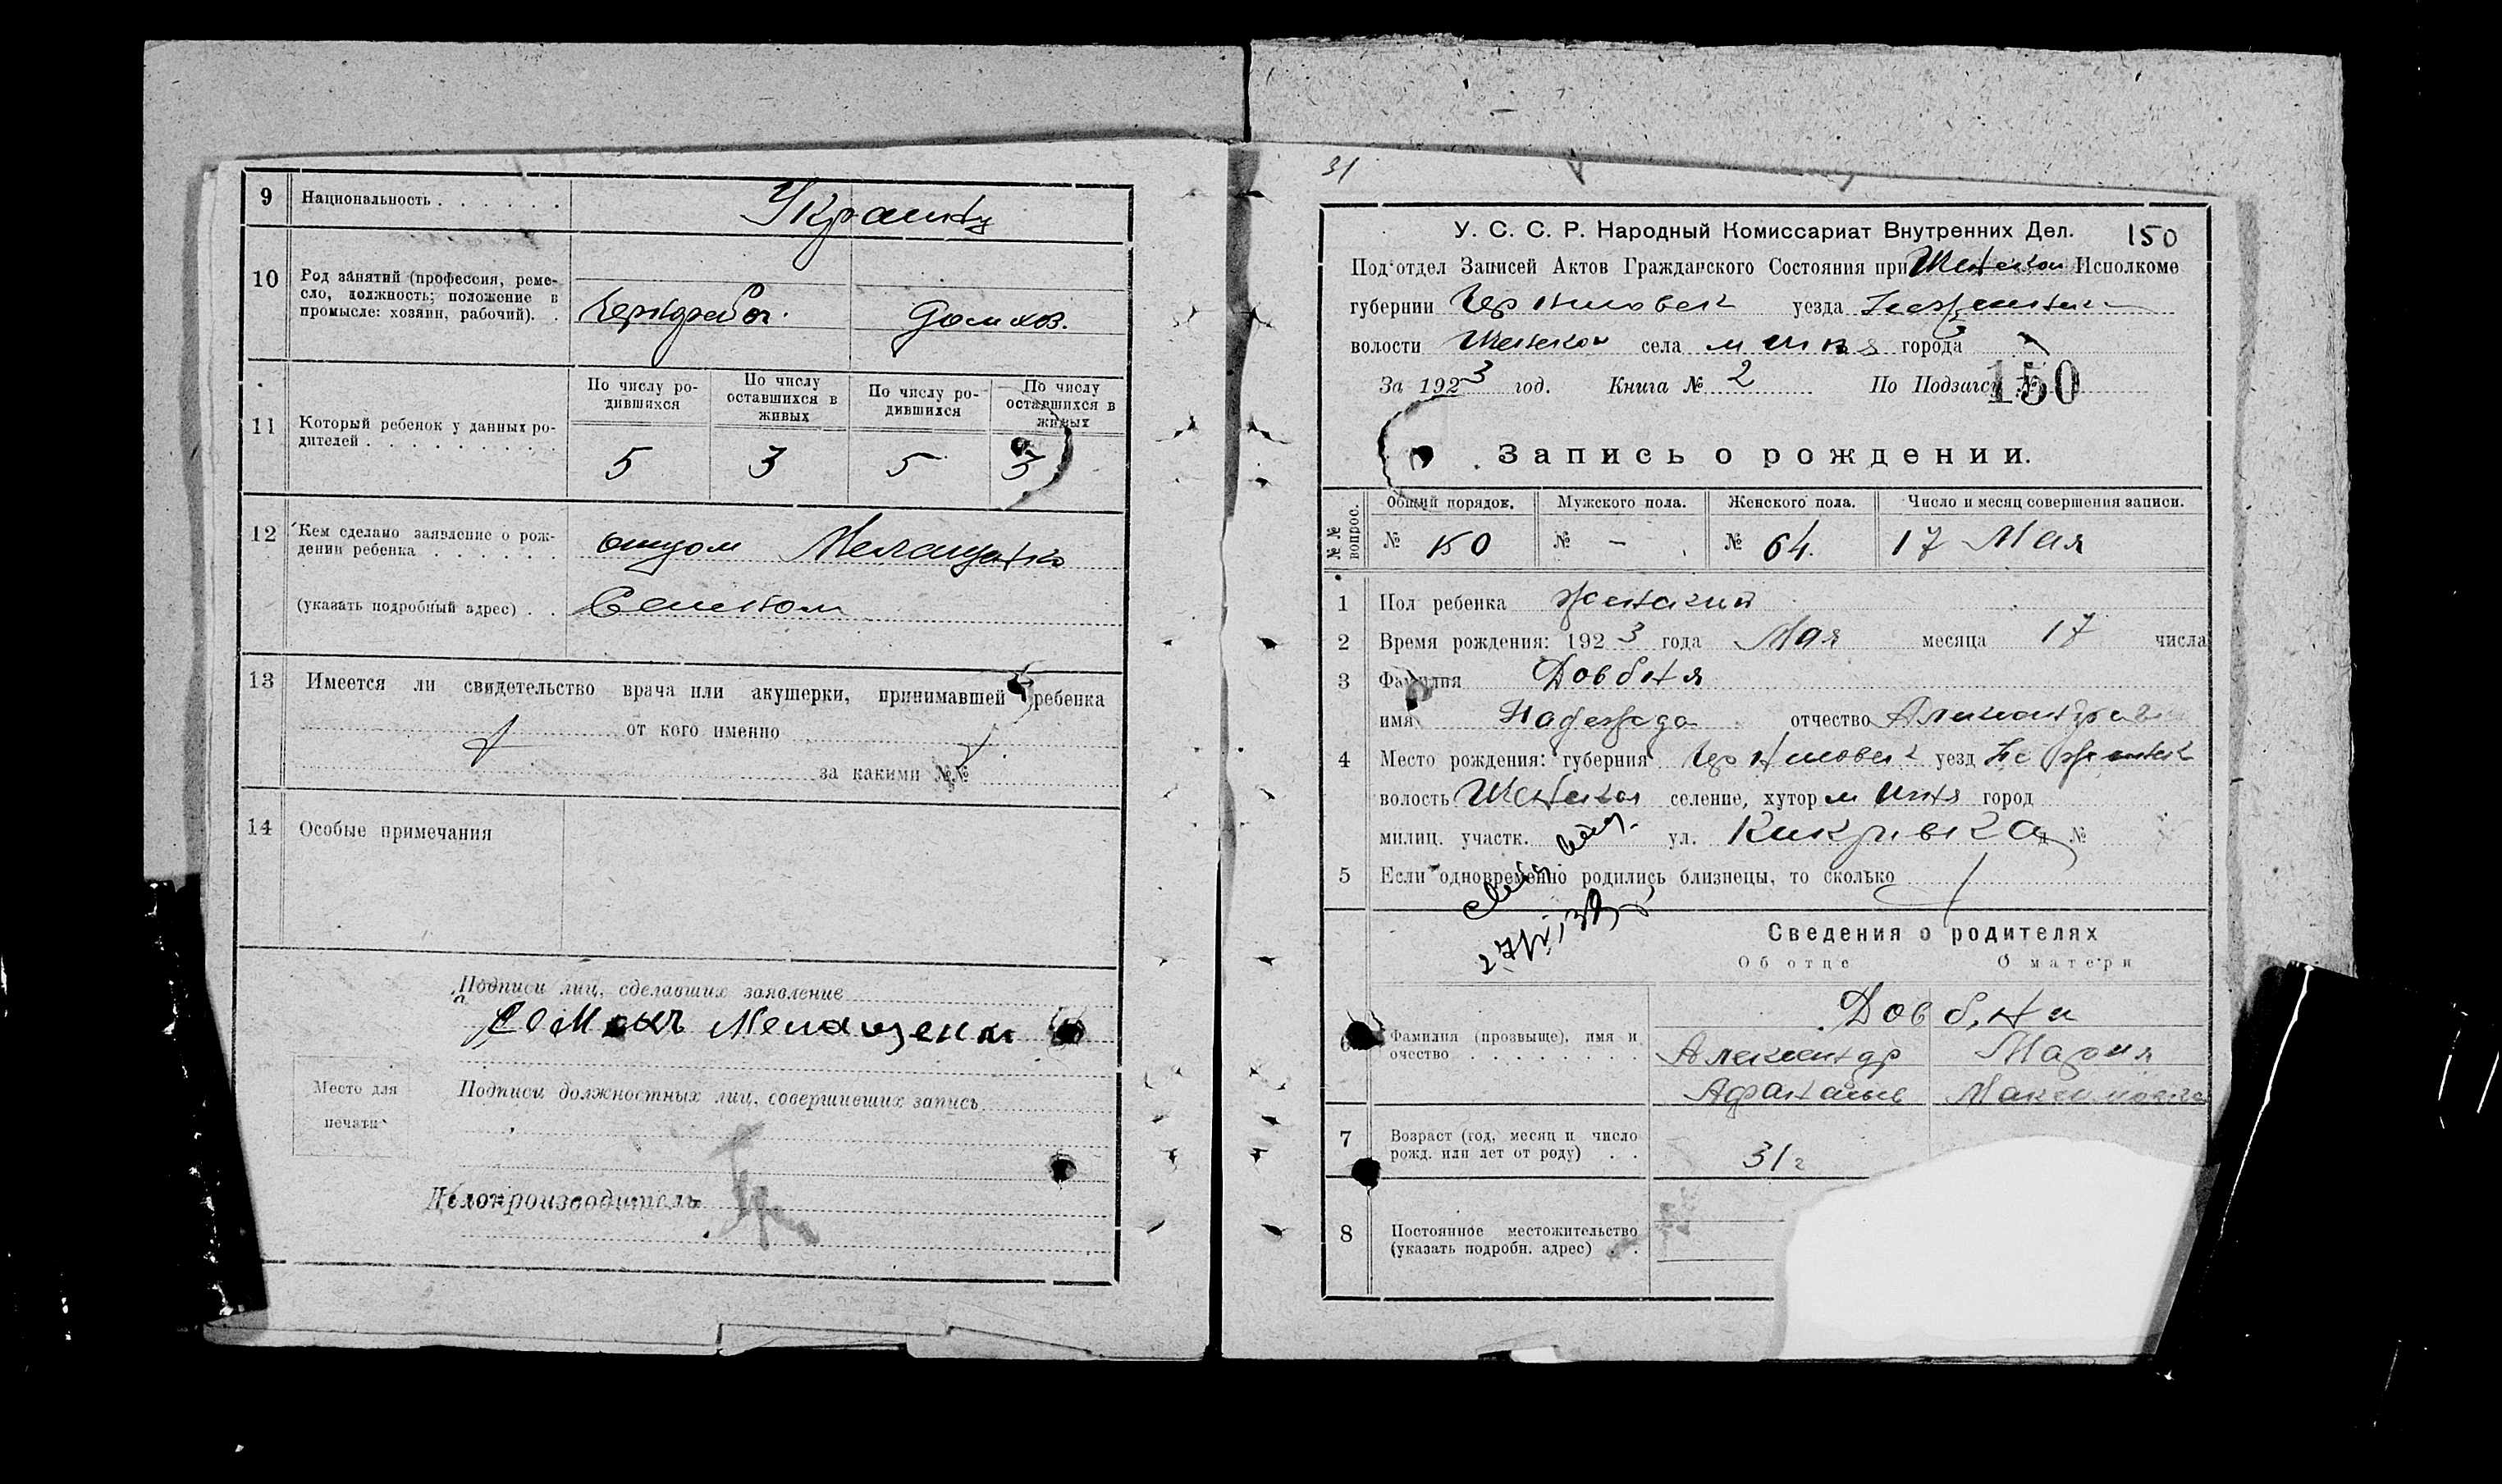 9 Национальность . . . . . . Украинц
10 Род занятий (профессия, реме-
сло, должность; положение в
промысле: хозяин, рабочий). . Чернораб. Домхоз.
11 Который ребенок у данных ро-
дителей . . . . . . . . .
По числу ро-
дившихся
По числу
оставшихся в
живых
По числу ро-
дившихся
По числу
оставшихся в
живых
5 3 5 3
12 Кем сделано заявление о рож-
дении ребенка . . . . . . отцом Мелащенко
(указать подробный адрес) . . Семеном
13 Имеется ли свидетельство врача или акушерки, принимавшей ребенка
от кого именно
за какими №№
14 Особые примечания
Подписи лиц, сделавших заявление
Мелащенко
Место для
печати
Подписи должностных лиц, совершивших запись
Делопроизводитель
31
У. С. С. Р. Народный Комиссариат Внутренних Дел. 150
Под'отдел Записей Актов Гражданского Состояния при Исполкоме
губернии Черниговск уезда Нежинск
волости села города
За 1923 год. Книга № 2 По Подзагсу № 150
Запись о рождении.
№№ вопрос.
Общий порядок. Мужского пола. Женского пола. Число и месяц совершения записи.
№ 150 № - № 64. 17 Мая
1 Пол ребенка женский
2 Время рождения: 1923 года Мая месяца 17 числа
3 Фамилия Довбня
имя Надежда отчество Александровна
4 Место рождения: губерния Черниговск уезд Нежинск
волость селение, хутор город
милиц. участк. ул. №
5 Если одновременно родились близнецы, то сколько
Сведения о родителях
Об отце О матери
6 Фамилия (прозвыще), имя и
очество . . . . . . . .
Довбни
Александр Мария
Афанасьев Максимовна
7 Возраст (год, месяц и число
рожд. или лет от роду) . . 31 г
8 Постоянное местожительство
(указать подробн. адрес) . .